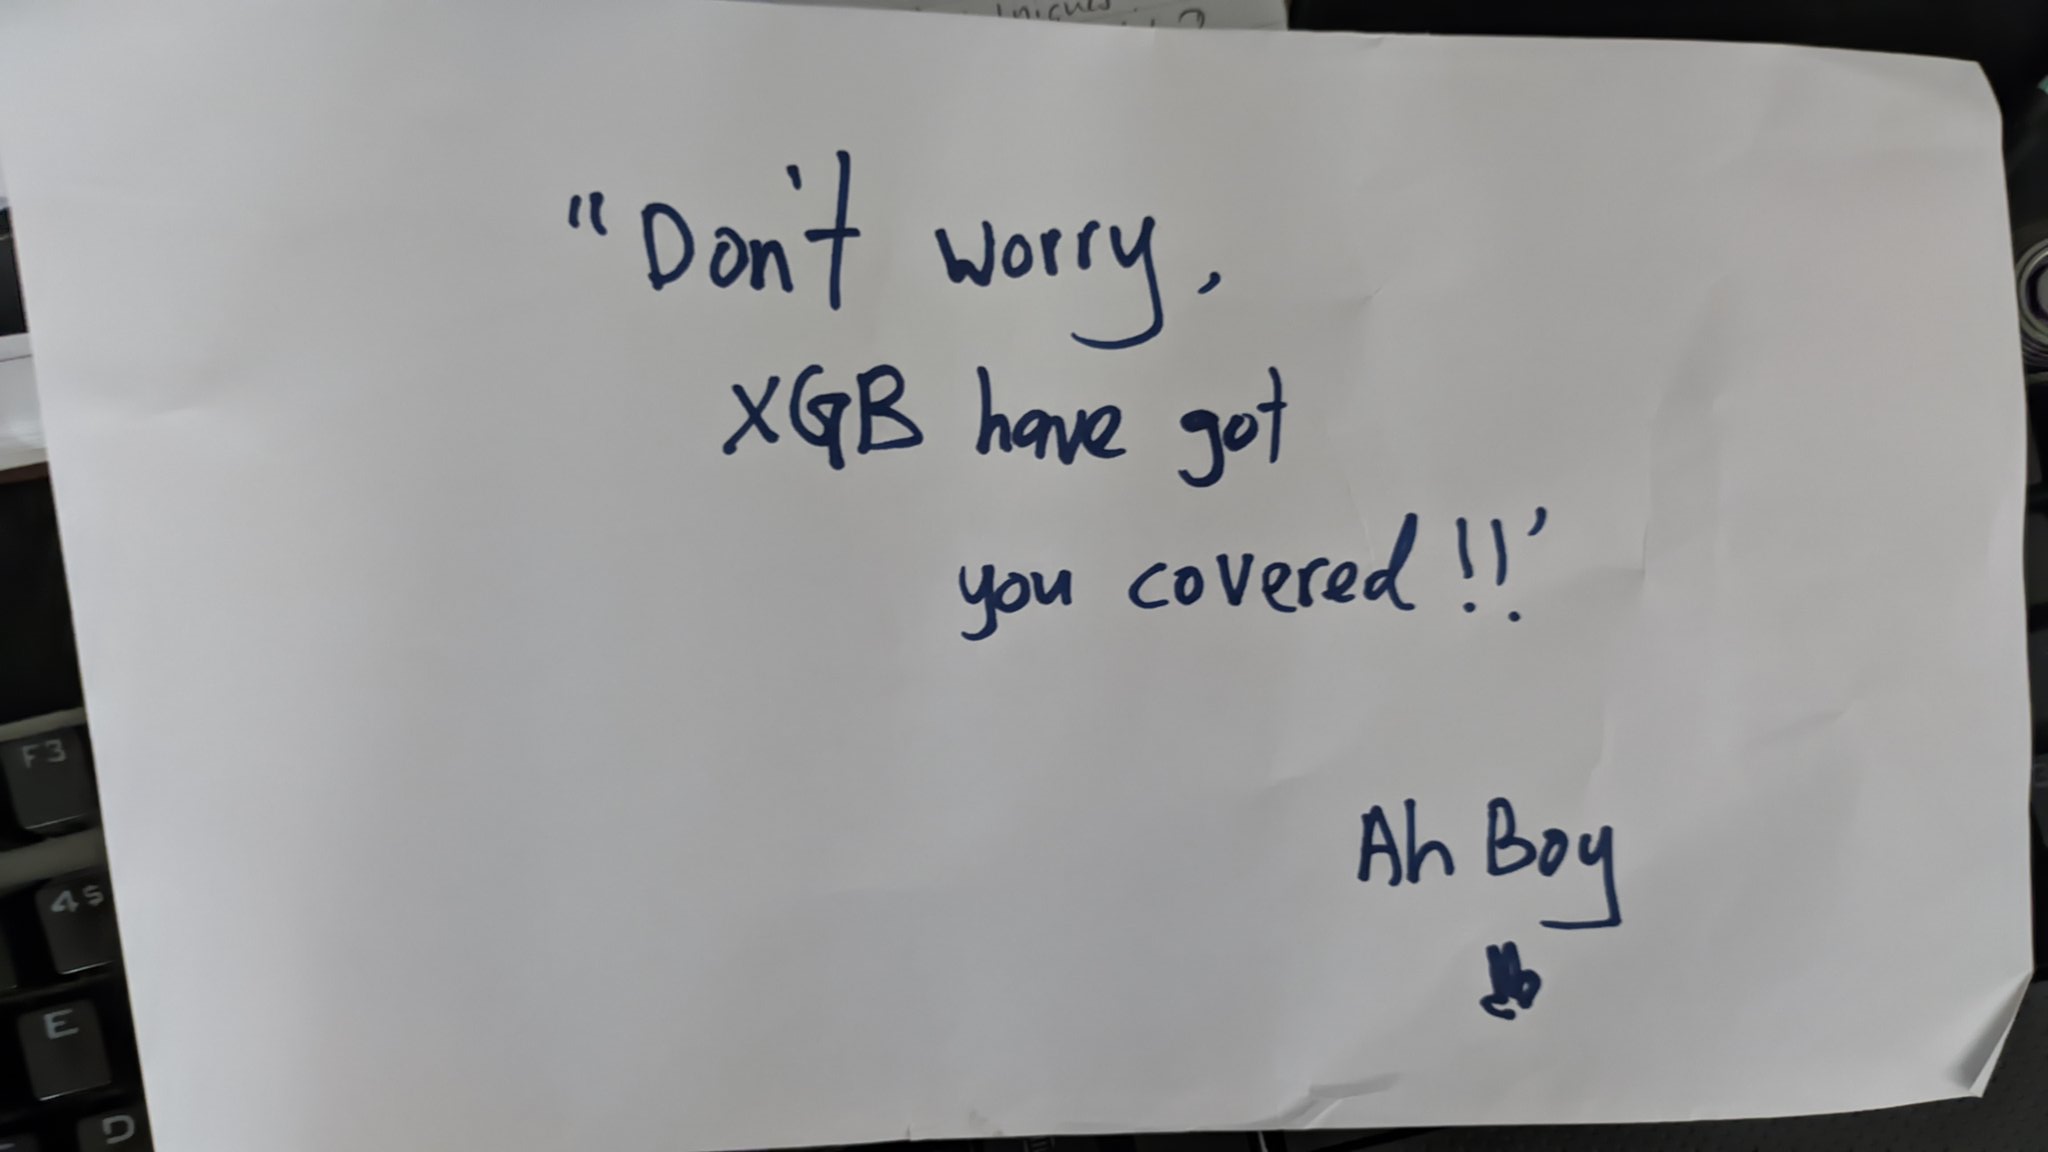 "Don't worry,
XGB have got
you covered!!'
Ah Boy
F3
4$
E
D